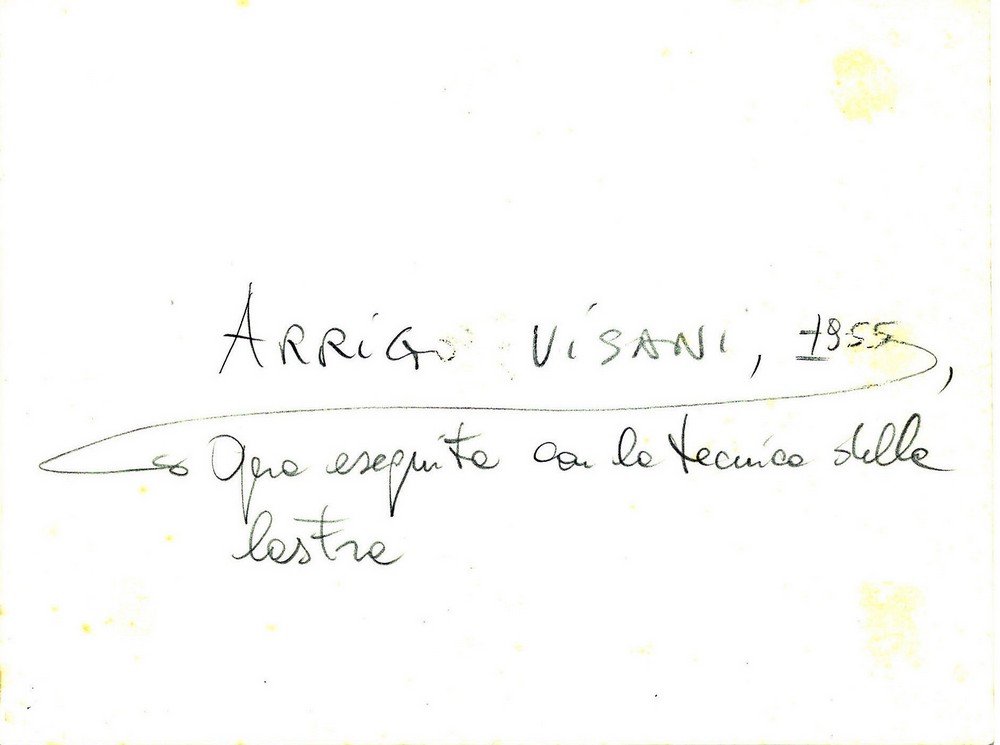 ARRIGO VISANI, 1955,
Opera eseguita con la tecnica della
lastra